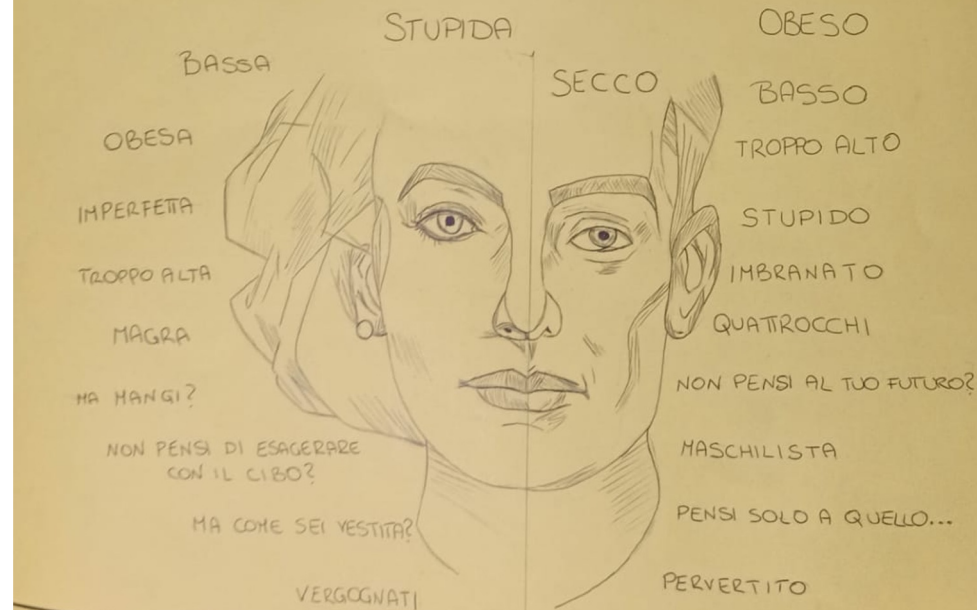 STUPIDA
BASSA
OBESA
IMPERFETTA
TROPPO ALTA
MAGRA
MA MANGI?
NON PENSI DI ESAGERARE
CON IL CIBO?
MA COME SEI VESTITA?
VERGOGNATI
OBESO
SECCO
BASSO
TROPPO ALTO
STUPIDO
IMBRANATO
QUATTROCCHI
NON PENSI AL TUO FUTURO?
MASCHILISTA
PENSI SOLO A QUELLO...
PERVERTITO